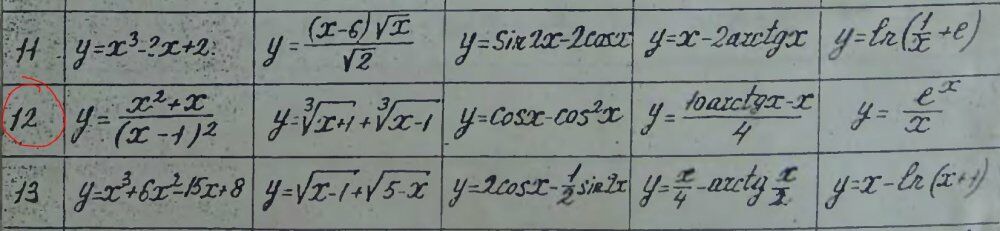 11 y=x³-3x+2 y=(x-6)√x/√2 y=sin2x-2cosx y=x-2arctgx y=ln(1/x+e)
12 y=x²+x/(x-1)² y=∛x+1+∛x-1 y=cosx-cos²x y=10arctgx-x/4 y=eˣ/x
13 y=x³+6x²-15x+8 y=√x-1+√5-x y=2cosx-1/2sin2x y=x/4-arctg x/2 y=x-ln(x+1)